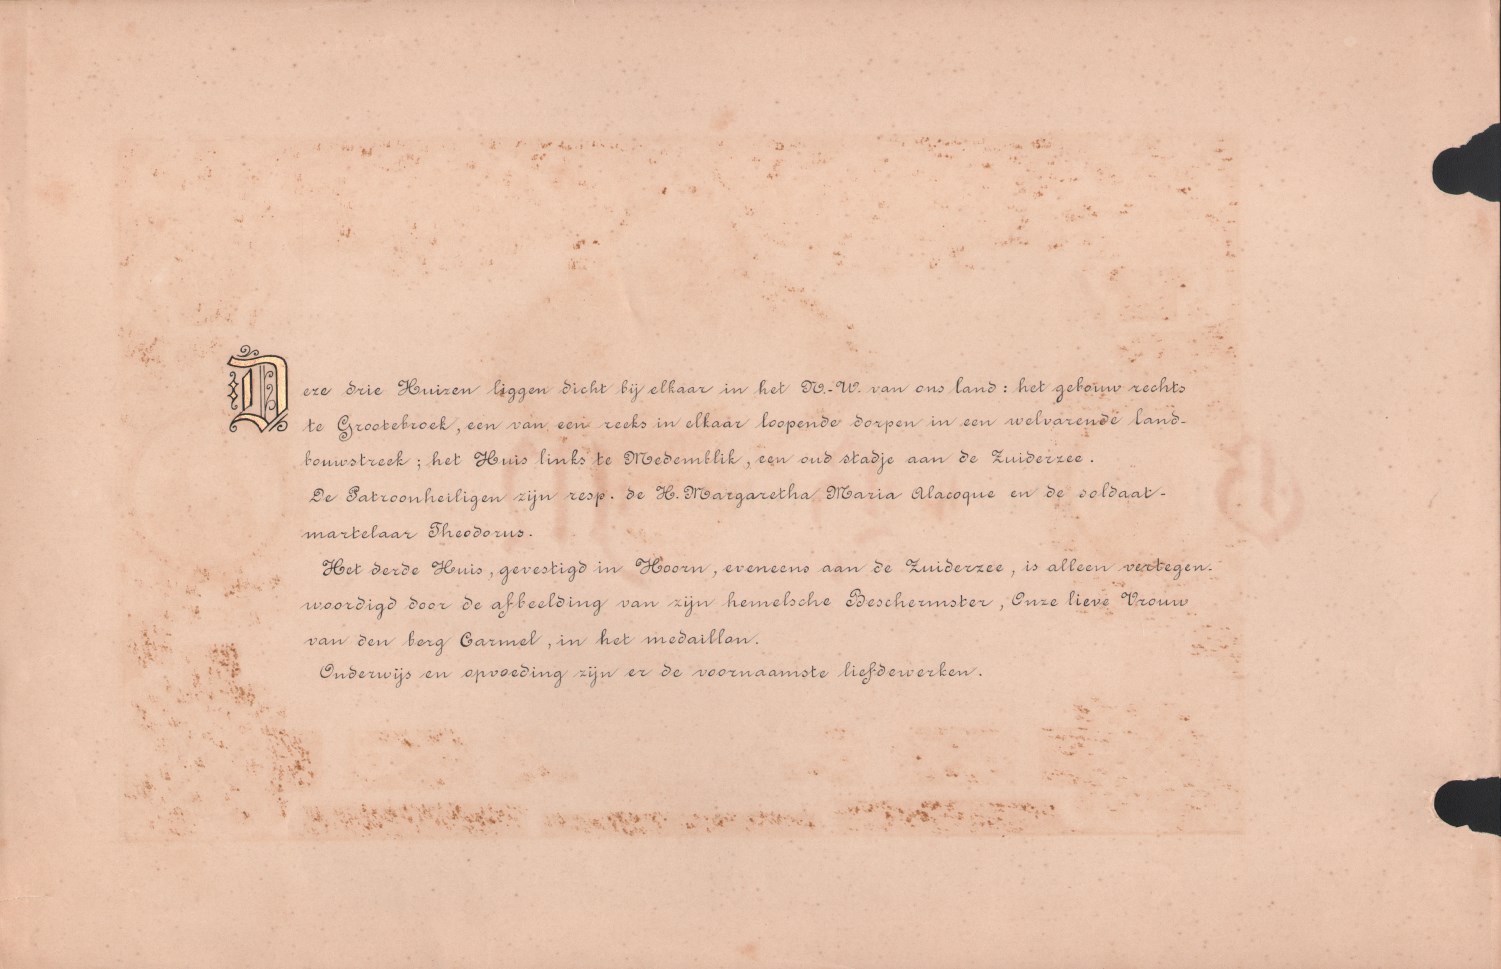 Deze drie Huizen liggen dicht bij elkaar in het N.-W. van ons land : het gebouw rechts
te Grootebroek, een van een reeks in elkaar loopende dorpen in een welvarende land-
bouwstreek ; het Huis links te Medemblik, een oud stadje aan de Zuiderzee.
De Patroonheiligen zijn resp. de H. Margaretha Maria Alacoque en de soldaat-
martelaar Theodorus.
Het derde Huis, gevestigd in Hoorn, eveneens aan de Zuiderzee, is alleen vertegen-
woordigd door de afbeelding van zijn hemelsche Beschermster, Onze lieve Vrouw
van den berg Carmel, in het medaillon.
Onderwijs en opvoeding zijn er de voornaamste liefdewerken.